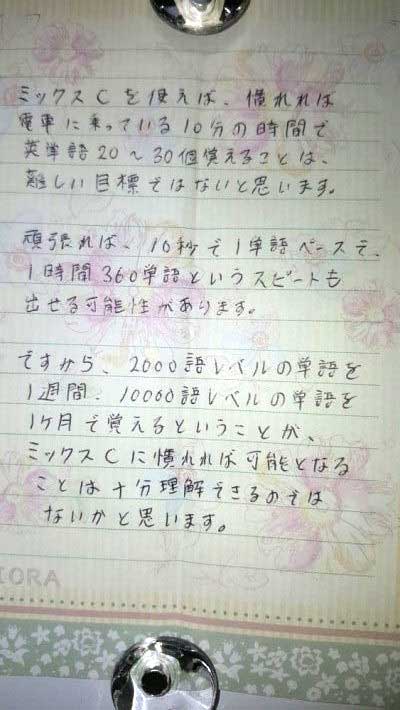 ミックスCを使えば、慣れれば
電車に乗っている10分の時間で
英単語20～30個覚えることは、
難しい目標ではないと思います。
頑張れば、10秒で1単語ペースで、
1時間360単語というスピードも
出せる可能性があります。
ですから、2000語レベルの単語を
1週間、10000語レベルの単語を
1ヶ月で覚えるということが、
ミックスCに慣れれば可能となる
ことは十分理解できるのでは
ないかと思います。
IORA